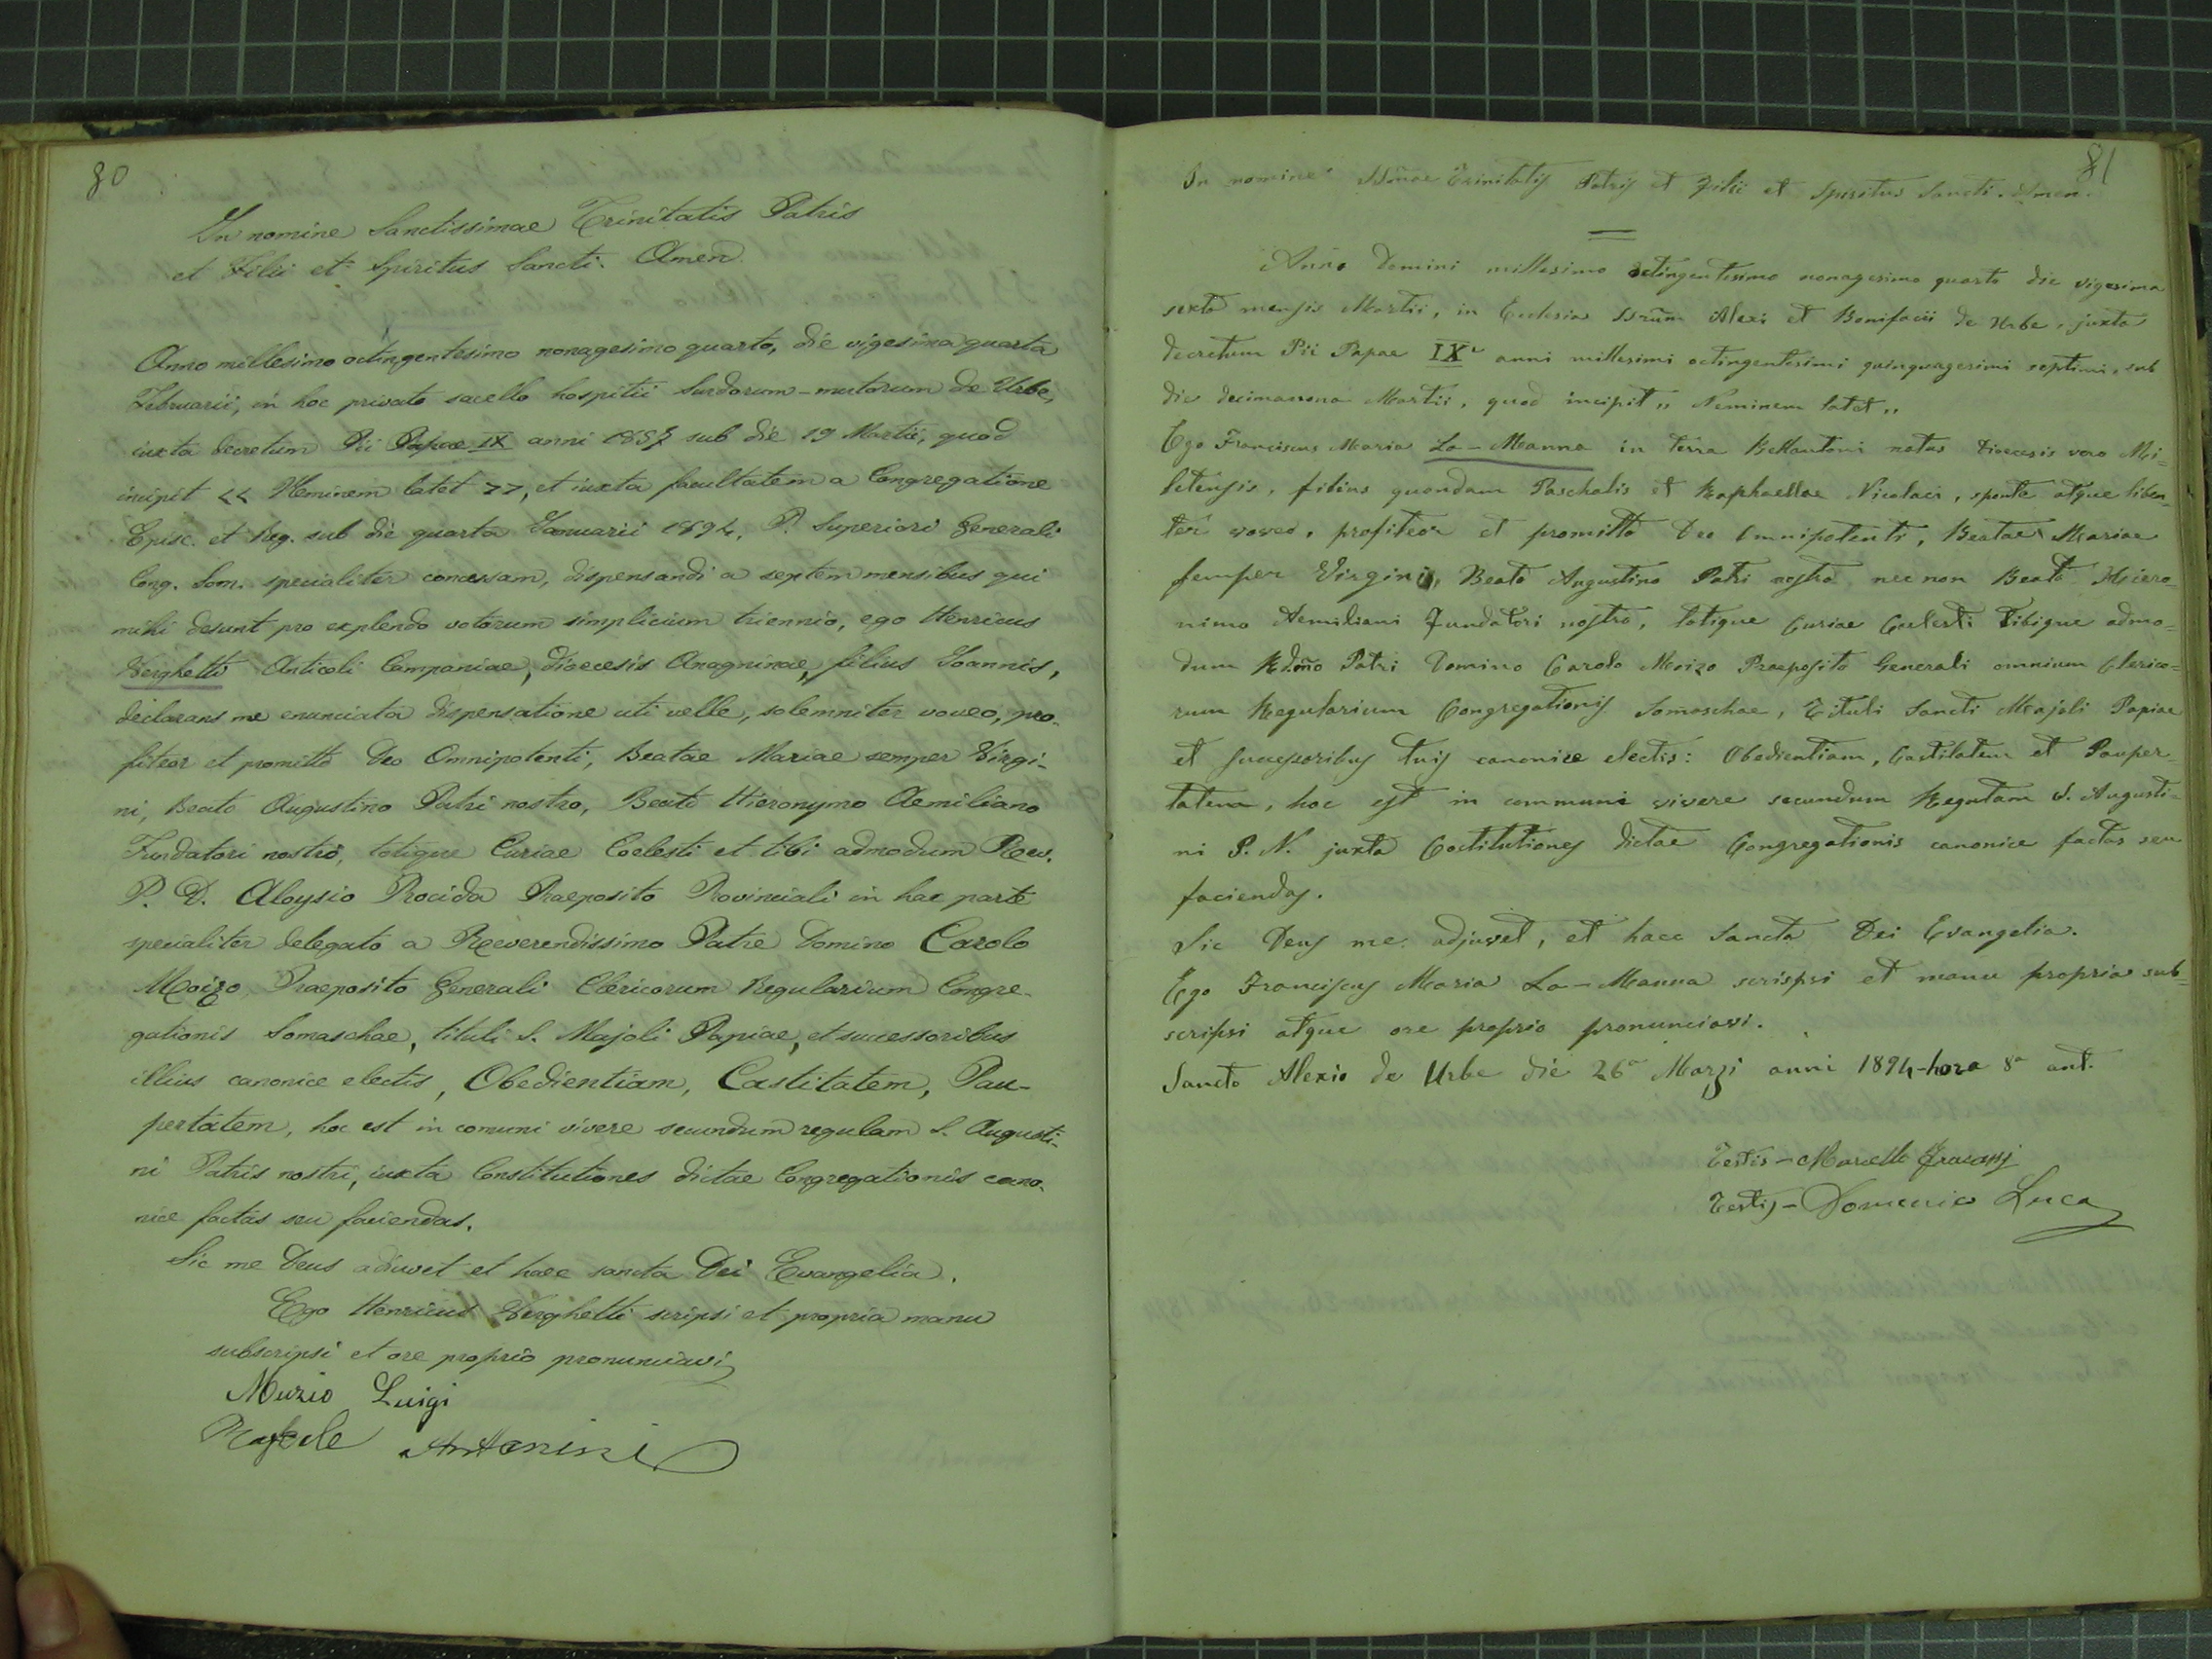 80
In nomine Sanctissimae Trinitatis Patris
et Filii et Spiritus Sancti. Amen.
Anno millesimo octingentesimo nonagesimo quarto, die vigesima quarta
Februarii, in hoc privato sacello hospitii Surdorum-mutorum de Urbe,
iuxta decretum Pii Papae IX anni 1857 sub die 19 Martii, quod
incipit << Neminem latet >>, et iuxta facultatem a Congregatione
Episc. et Reg. sub die quarta Ianuarii 1894, P. Superiori Generali
Cong. Som. specialiter concessam, dispensandi a septem mensibus qui
mihi desunt pro explendo votorum simplicium triennio, ego Henricus
Verghetti Anticoli Campaniae, dioecesis Anagninae, filius Ioannis,
declarans me enunciata dispensatione uti velle, solemniter voveo, pro-
fiteor et promitto Deo Omnipotenti, Beatae Mariae semper Virgi-
ni, Beato Augustino Patri nostro, Beato Hieronymo Aemiliano
Fundatori nostro, totique Curiae Coelesti et tibi admodum Rev.
P. D. Aloysio Procida Praeposito Provinciali in hac parte
specialiter delegato a Reverendissimo Patre Domino Carolo
Moizo Praeposito Generali Clericorum Regularium Congre-
gationis Somaschae, tituli S. Majoli Papiae, et successoribus
illius canonice electis, Obedientiam, Castitatem, Pau-
pertatem, hoc est in comuni vivere secundum regulam S. Augusti-
ni Patris nostri, iuxta Constitutiones dictae Congregationis cano-
nice factas seu faciendas.
Sic me Deus adiuvet et haec sancta Dei Evangelia.
Ego Henricus Verghetti scripsi et propria manu
subscripsi et ore proprio pronunciavi
Muzio Luigi
Rafaele Antonini
81
In nomine SSmae Trinitatis Patris et Filii et Spiritus Sancti. Amen.
Anno Domini millesimo octingentesimo nonagesimo quarto die vigesima
sexta mensis Martii, in Ecclesia SSrum Alexi et Bonifacii de Urbe, juxta
decretum Pii Papae IX anni millesimi octingentesimi quinquagesimi septimi, sub
die decimanona Martii, quod incipit „ Neminem latet „
Ego Franciscus Maria La-Manna in terra Bellantoni natus Dioecesis vero Mi=
letensis, filius quondam Paschalis et Raphaellae Nicolaci, sponte atque liben=
ter voveo, profiteor et promitto Deo Omnipotenti, Beatae Mariae
semper Virgini, Beato Augustino Patri nostro nec non Beato Hiero=
nimo Aemiliani Fundatori nostro, totique Curiae Coelesti Tibique admo=
dum Rdmo Patri Domino Carolo Moizo Praeposito Generali omnium Clerico=
rum Regularium Congregationis Somaschae, Tituli Sancti Majoli Papiae
et successoribus tuis canonice electis: Obedientiam, Castitatem et Pauper=
tatem, hoc est in communi vivere secundum Regulam S. Augusti=
ni P. N. juxta Costitutiones dictae Congregationis canonice factas seu
faciendas.
Sic Deus me adjuvet, et haec Sancta Dei Evangelia.
Ego Franciscus Maria La-Manna scripsi et manu propria sub=
scripsi atque ore proprio pronunciavi.
Sancto Alexio de Urbe die 26a Marzi anni 1894-hora 8a ant.
Testis-Marcello
Testis-Domenico Luca